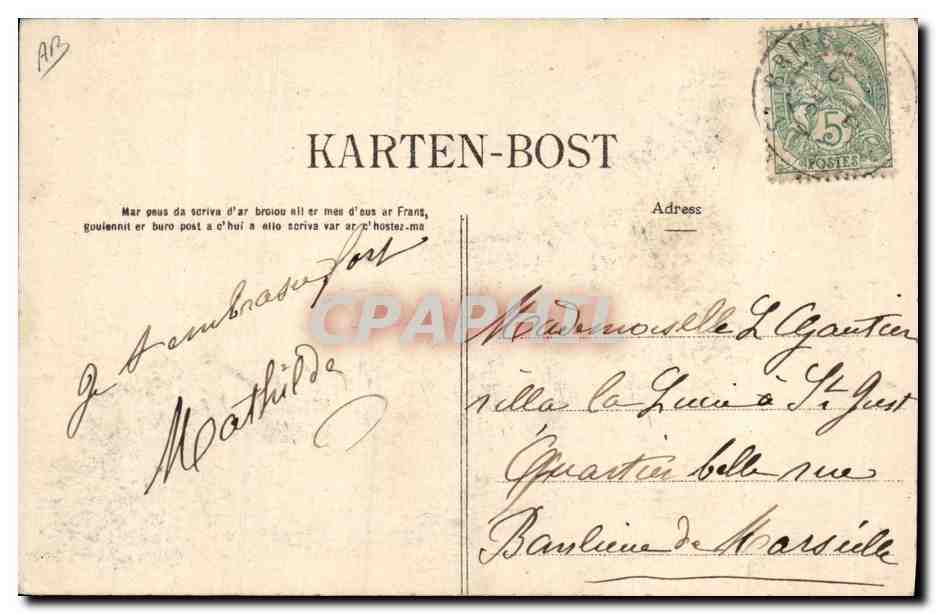 AB
BRIE
5
POSTES
KARTEN-BOST
Mar peus da scriva d'ar broiou all er mes d'eus ar Frans,
goulennit er buro post a c'hui a ello scriva var ar c'hostez-ma
Adress
Je t'embrasse fort
Mathilde
CPAPHIL
Mademoiselle L Gautier
villa la Lucie à St Just
Quartier belle vue
Banlieue de Marseille